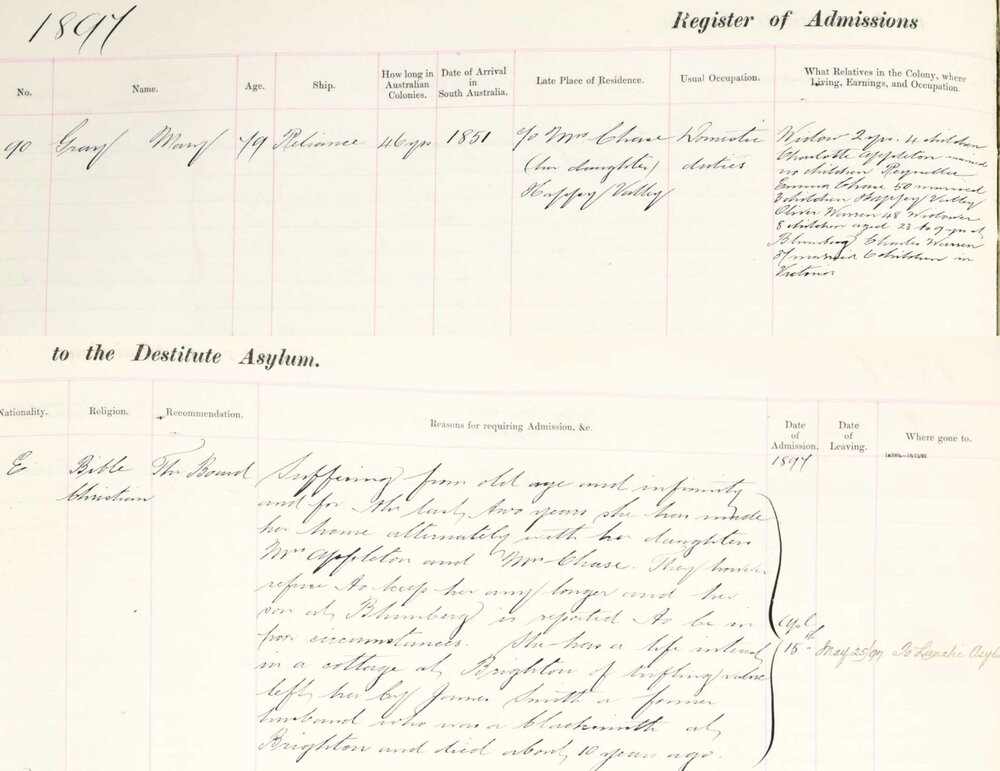 1897
Register of Admissions
No.
Name.
Age.
Ship.
How long in
Australian
Colonies.
Date of Arrival
in
South Australia.
Late Place of Residence.
Usual Occupation.
What Relatives in the Colony, where
Living, Earnings, and Occupation.
90
Gray Mary
79
Reliance
46 yrs
1851
c/o Mrs Chase
(her daughter)
Happy Valley
Domestic
duties
Widow 2 yrs. 4 children
Charlotte Appleton married
no children Reynella
Emma Chase 50 married
3 children Happy Valley
Oliver Warren 48 Widower
8 children aged 23 to 9 yrs at
Blumberg Charles Warren
married 6 children in
Victoria
to the Destitute Asylum.
Nationality.
Religion.
Recommendation.
Reasons for requiring Admission, &c.
Date
of
Admission.
Date
of
Leaving.
Where gone to.
1897
E
Bible
Christian
The Board
Suffering from old age and infirmity
and for the last two years she has made
her home alternately with her daughters
Mrs Appleton and Mrs Chase. They however
refuse to keep her any longer and her
son at Blumberg is reported to be in
poor circumstances. She has a life interest
in a cottage at Brighton of trifling value
left her by James Smith a former
husband who was a blacksmith at
Brighton and died about 10 years ago.
Apl
15th
May 25/97
To Lunatic Asylu